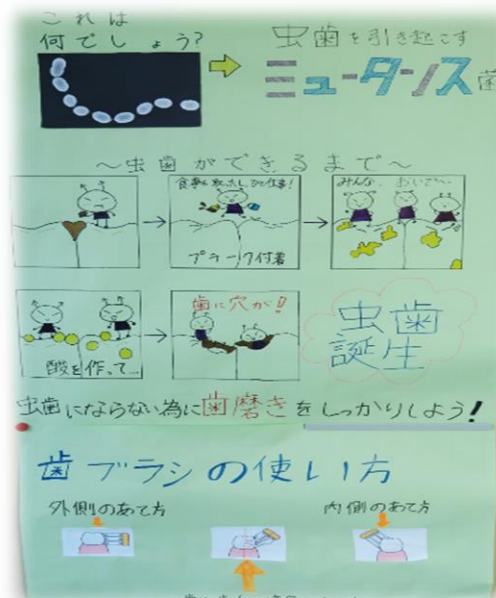 これは
何でしょう?
虫歯を引き起こす
ミュータンス菌
～虫歯ができるまで～
プラーク付着
みんな、おいで〜
酸を作って…
歯に穴が!
虫歯
誕生
虫歯にならない為に歯磨きをしっかりしよう!
歯ブラシの使い方
外側のあて方
内側のあて方